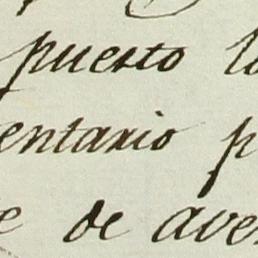 puesto lo
entario p
e de aver